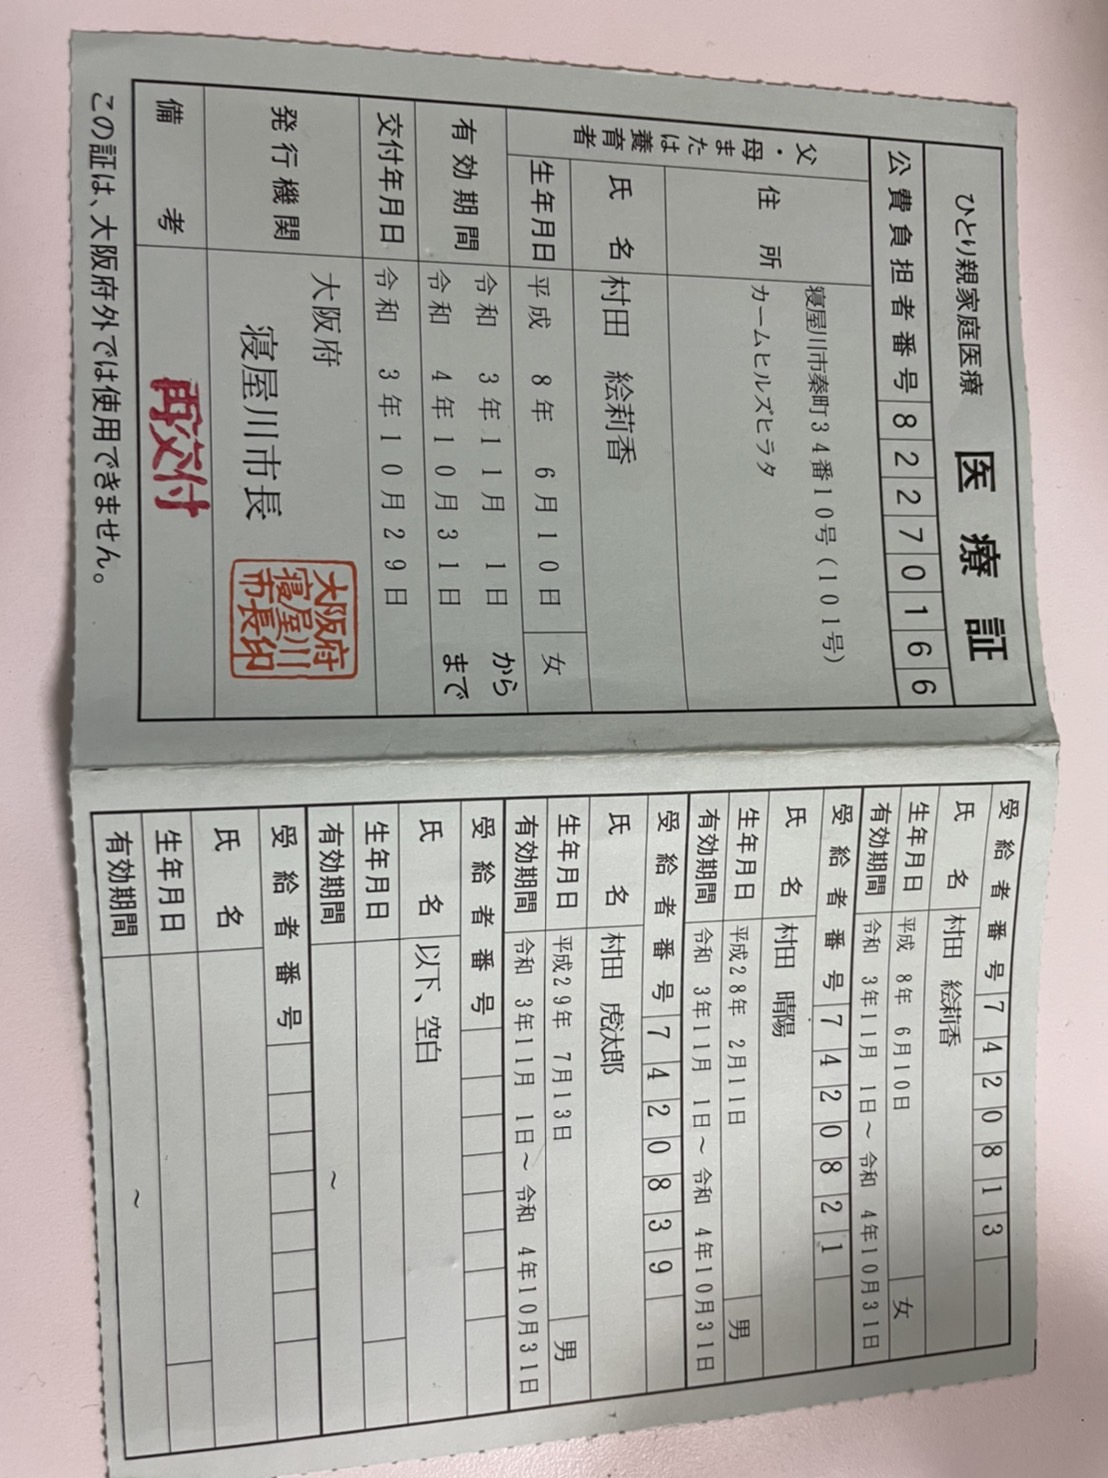 ひとり親家庭医療 医療証
公費負担者番号 82270166
父・母または養育者
住所 寝屋川市秦町34番10号(101号)
カームヒルズヒラタ
氏名 村田 絵莉香
生年月日 平成 8年 6月10日 女
有効期間 令和 3年11月 1日 から
令和 4年10月31日 まで
交付年月日 令和 3年10月29日
発行機関 大阪府
寝屋川市長
大阪府寝屋川市長印
備考 再交付
この証は、大阪府外では使用できません。
受給者番号 7420813
氏名 村田 絵莉香
生年月日 平成 8年 6月10日 女
有効期間 令和 3年11月 1日~令和 4年10月31日
受給者番号 7420821
氏名 村田 晴陽
生年月日 平成28年 2月11日 男
有効期間 令和 3年11月 1日~令和 4年10月31日
受給者番号 7420839
氏名 村田 虎汰郎
生年月日 平成29年 7月13日 男
有効期間 令和 3年11月 1日~令和 4年10月31日
受給者番号
氏名 以下、空白
生年月日
有効期間 ~
受給者番号
氏名
生年月日
有効期間 ~